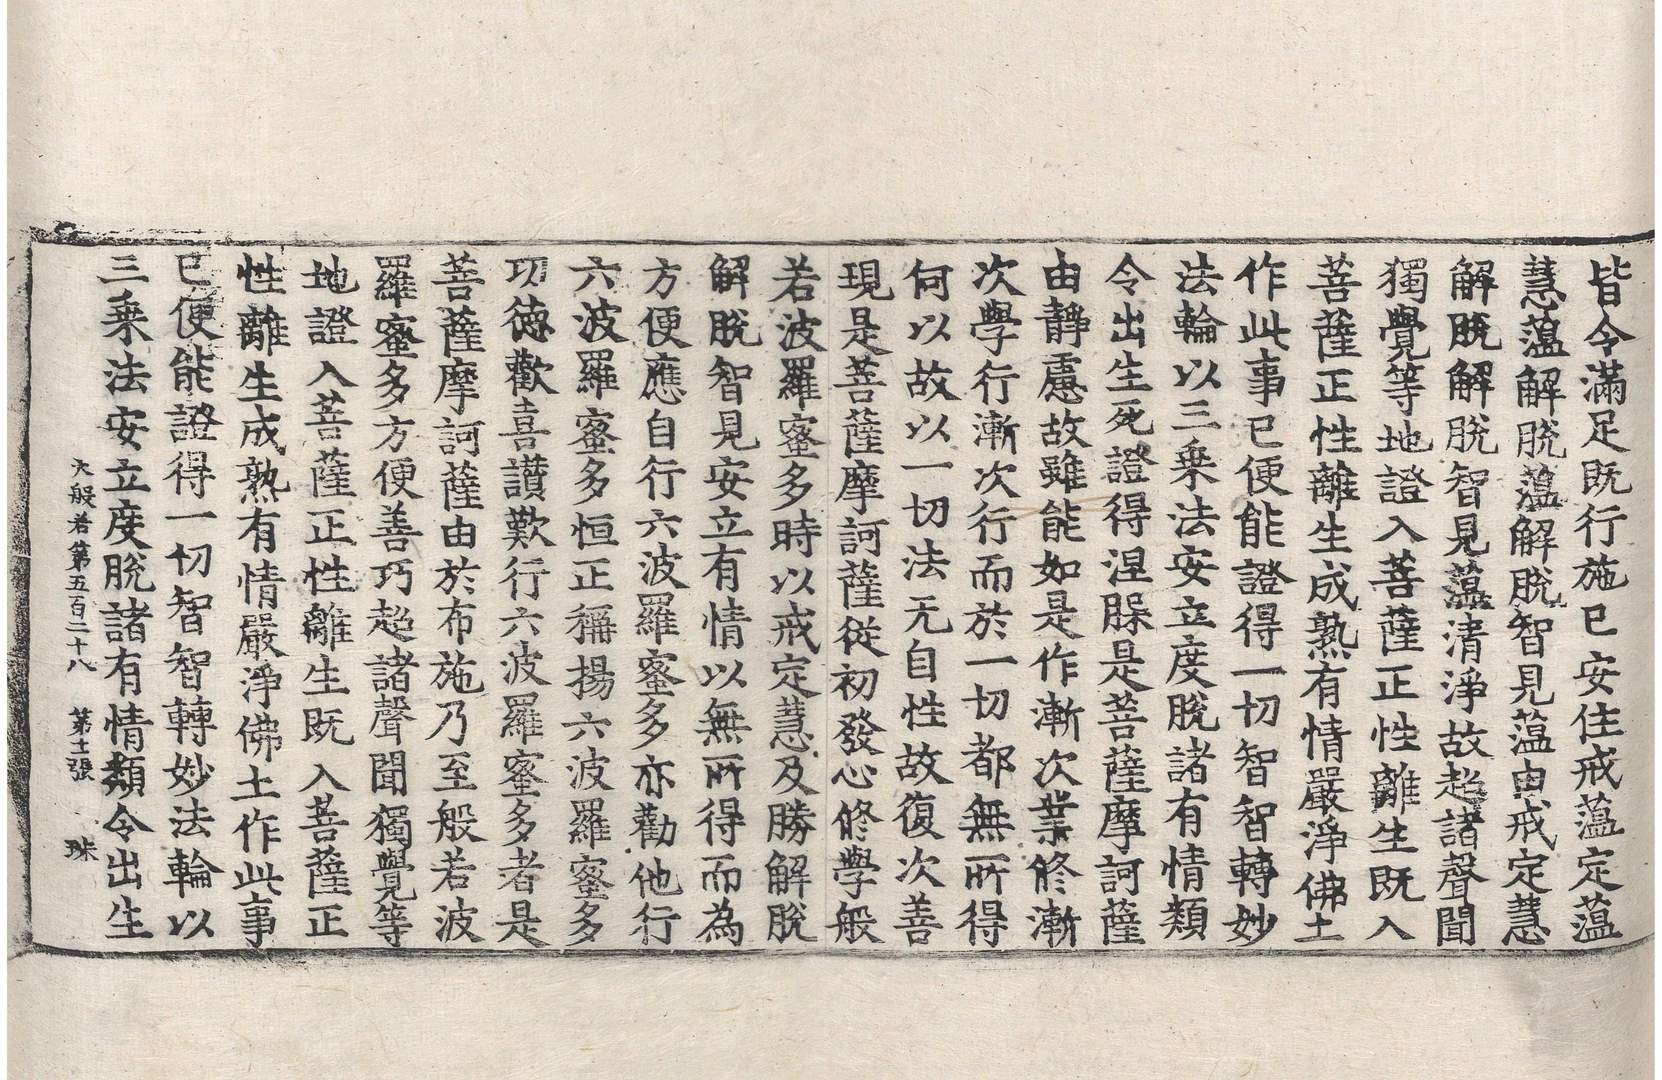 皆令滿足既行施已安住戒蕰定蕰
慧蕰解脫蕰解脫智見蕰由戒定慧
解脫解脫智見蕰清淨故超諸聲聞
獨覺等地證入菩薩正性離生既入
菩薩正性離生成熟有情嚴淨佛土
作此事已便能證得一切智智轉妙
法輪以三乗法安立度脫諸有情類
令出生死證得涅槃是菩薩摩訶薩
由靜慮故雖能如是作漸次業修漸
次學行漸次行而於一切都無所得
何以故以一切法无自性故復次善
現是菩薩摩訶薩從初發心修學般
若波羅蜜多時以戒定慧及勝解脫
解脫智見安立有情以無所得而為
方便應自行六波羅蜜多亦勸他行
六波羅蜜多恒正稱揚六波羅蜜多
功德歡喜讚歎行六波羅蜜多者是
菩薩摩訶薩由於布施乃至般若波
羅蜜多方便善巧超諸聲聞獨覺等
地證入菩薩正性離生既入菩薩正
性離生成熟有情嚴淨佛土作此事
已便能證得一切智智轉妙法輪以
三乗法安立度脫諸有情類令出生
大般若第五百二十八 第十一張 珠